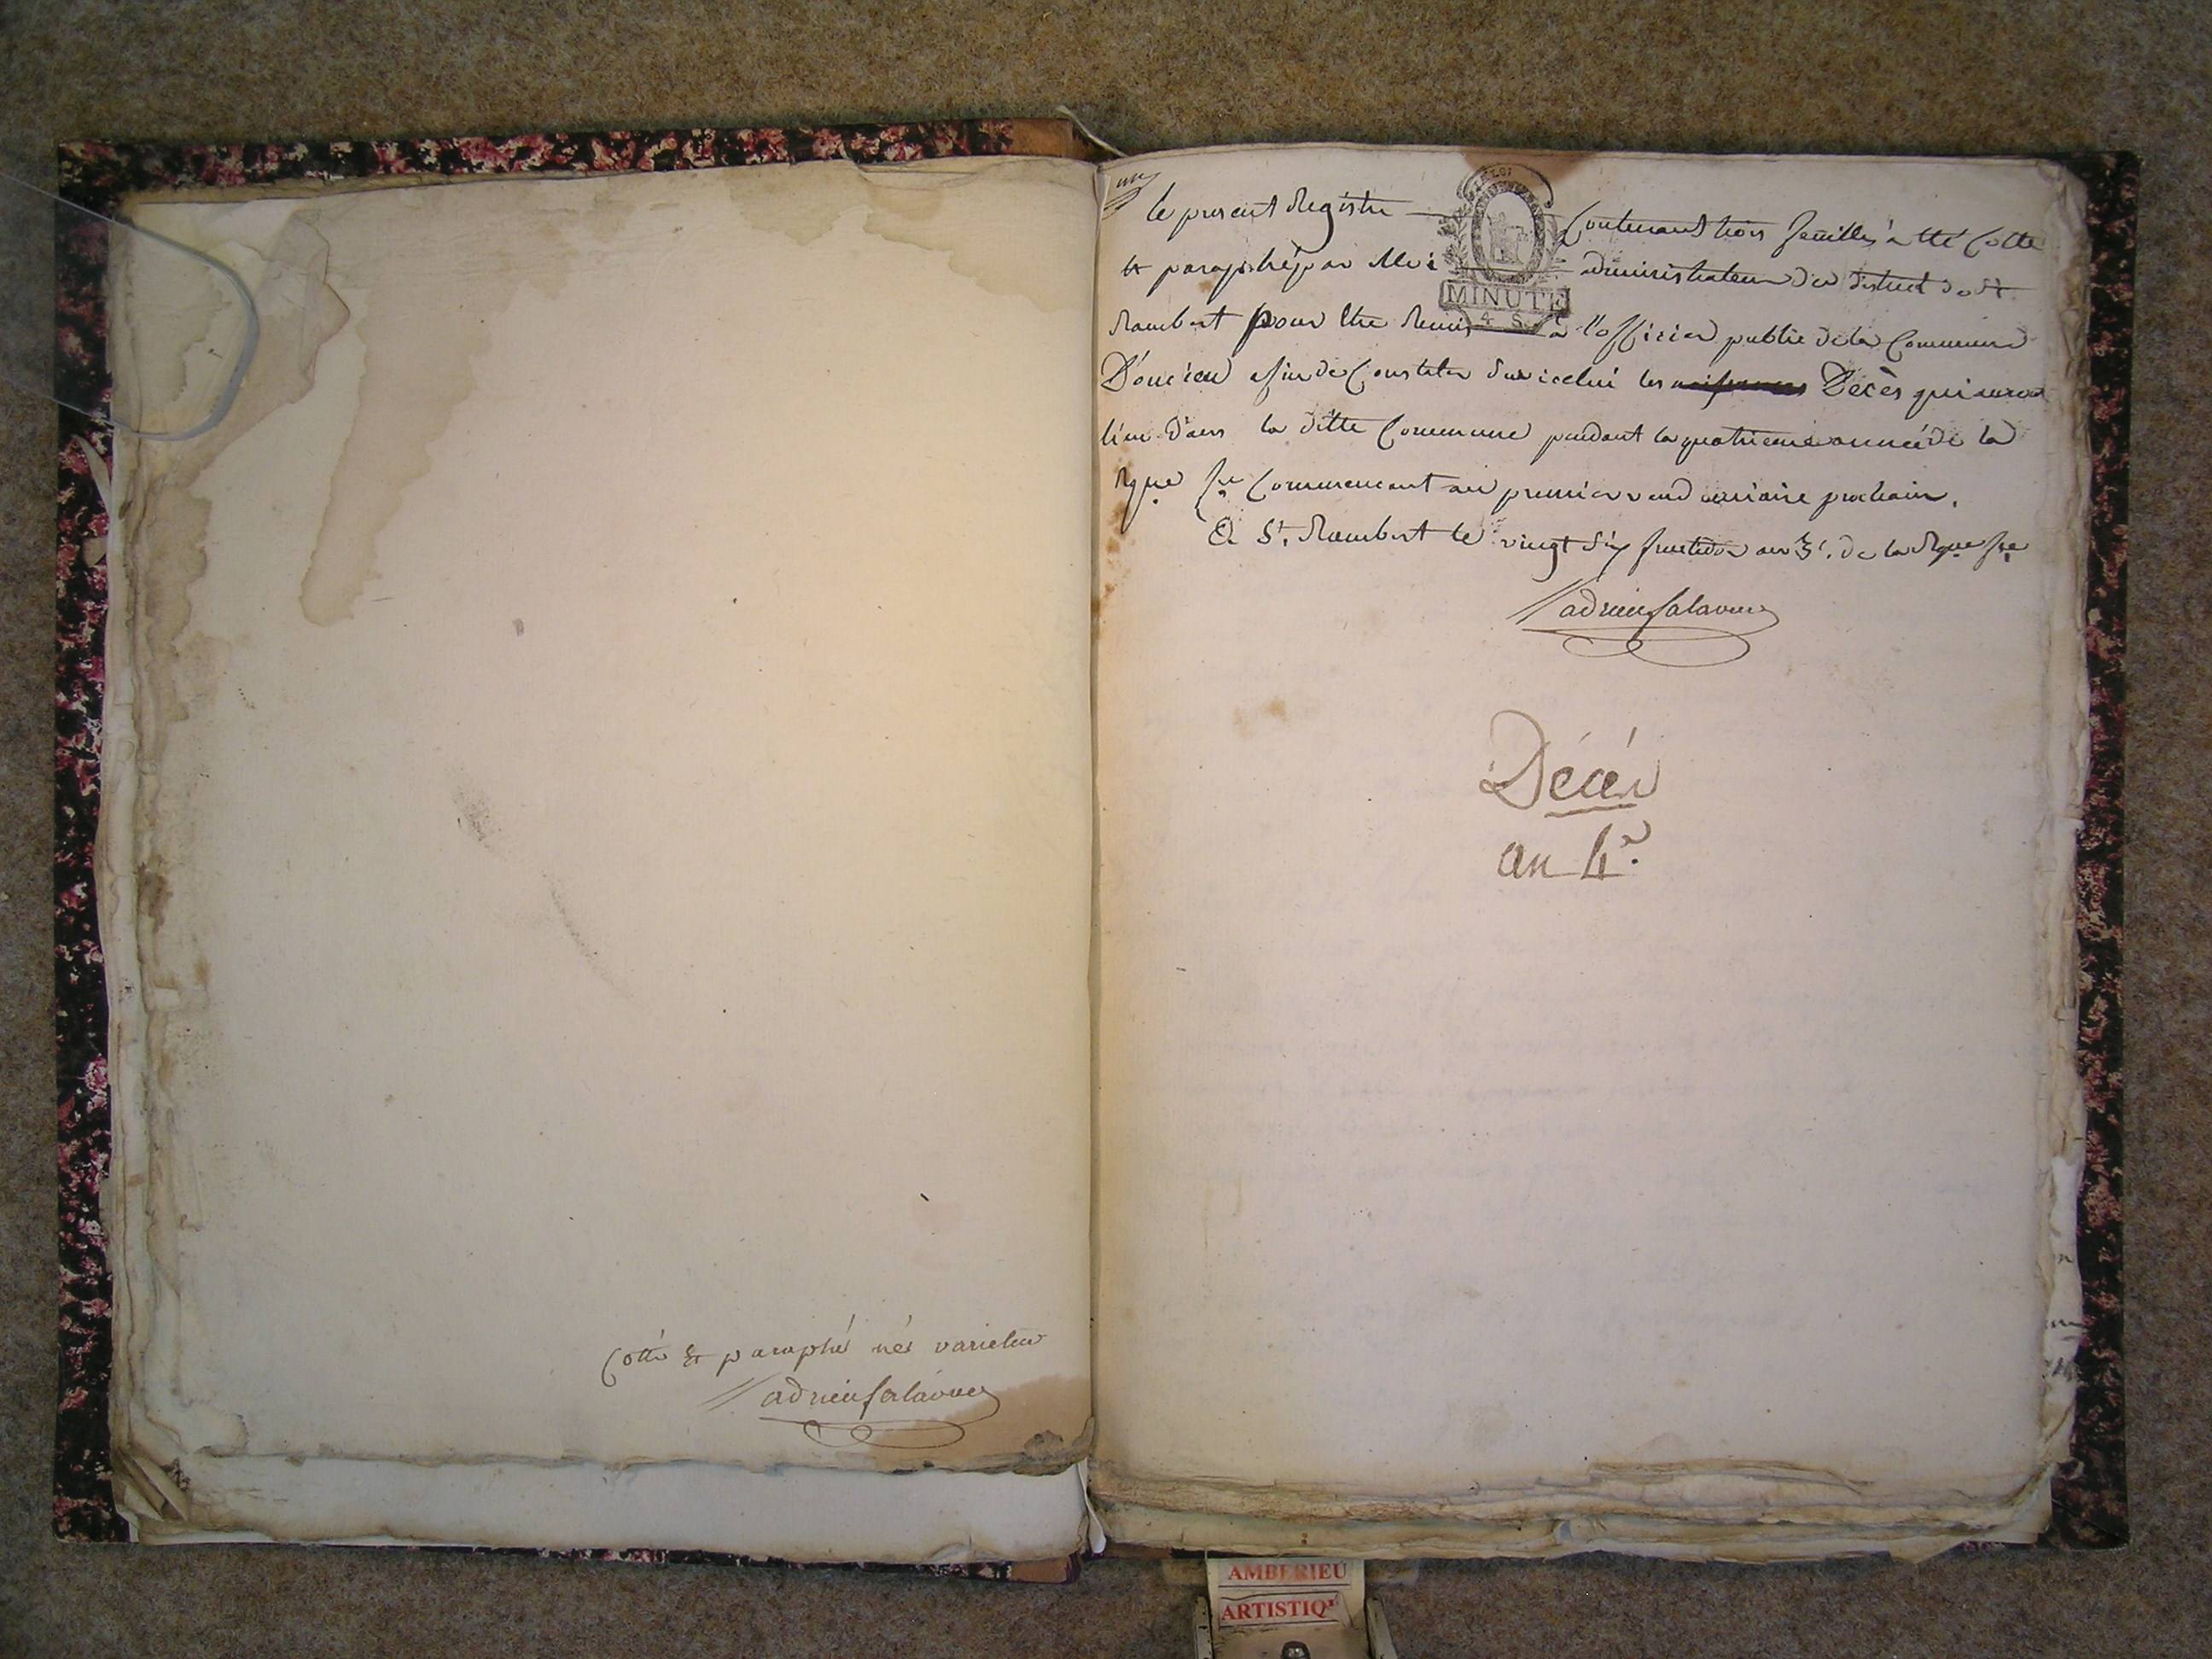 Cotté & paraphé née varietur
adrien salavue
un
le present Registre contenant trois feuilles a été Cotté
et paraphé par Moi administrateur du district de St
Rambert pour être Remis à l'officier public de la Commune
D'oncieu afin de Constater sur icelui les naissances Décès qui auront
lieu dans la ditte Commune pendant la quatrieme année de la
Rque fse Commencant au premier vendemiaire prochain.
A St. Rambert le vingt six fructidor an 3e. de la Rque fse
adrien salavue
LA LOI
MINUTE
4 S.
Décès
an 4e.
AMBERIEU
ARTISTIQ